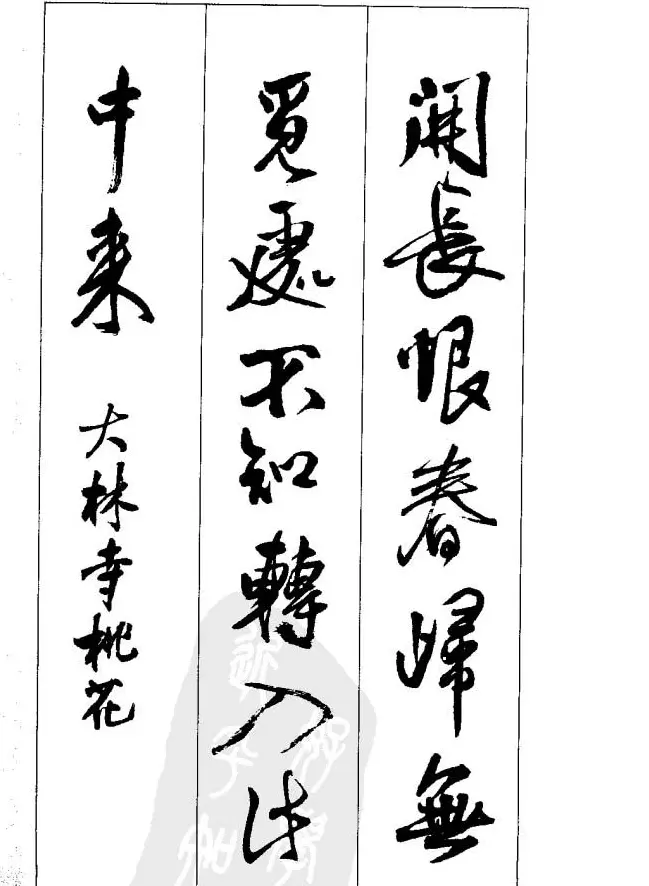 開長恨春歸無
覓處不知轉入此
中來
大林寺桃花